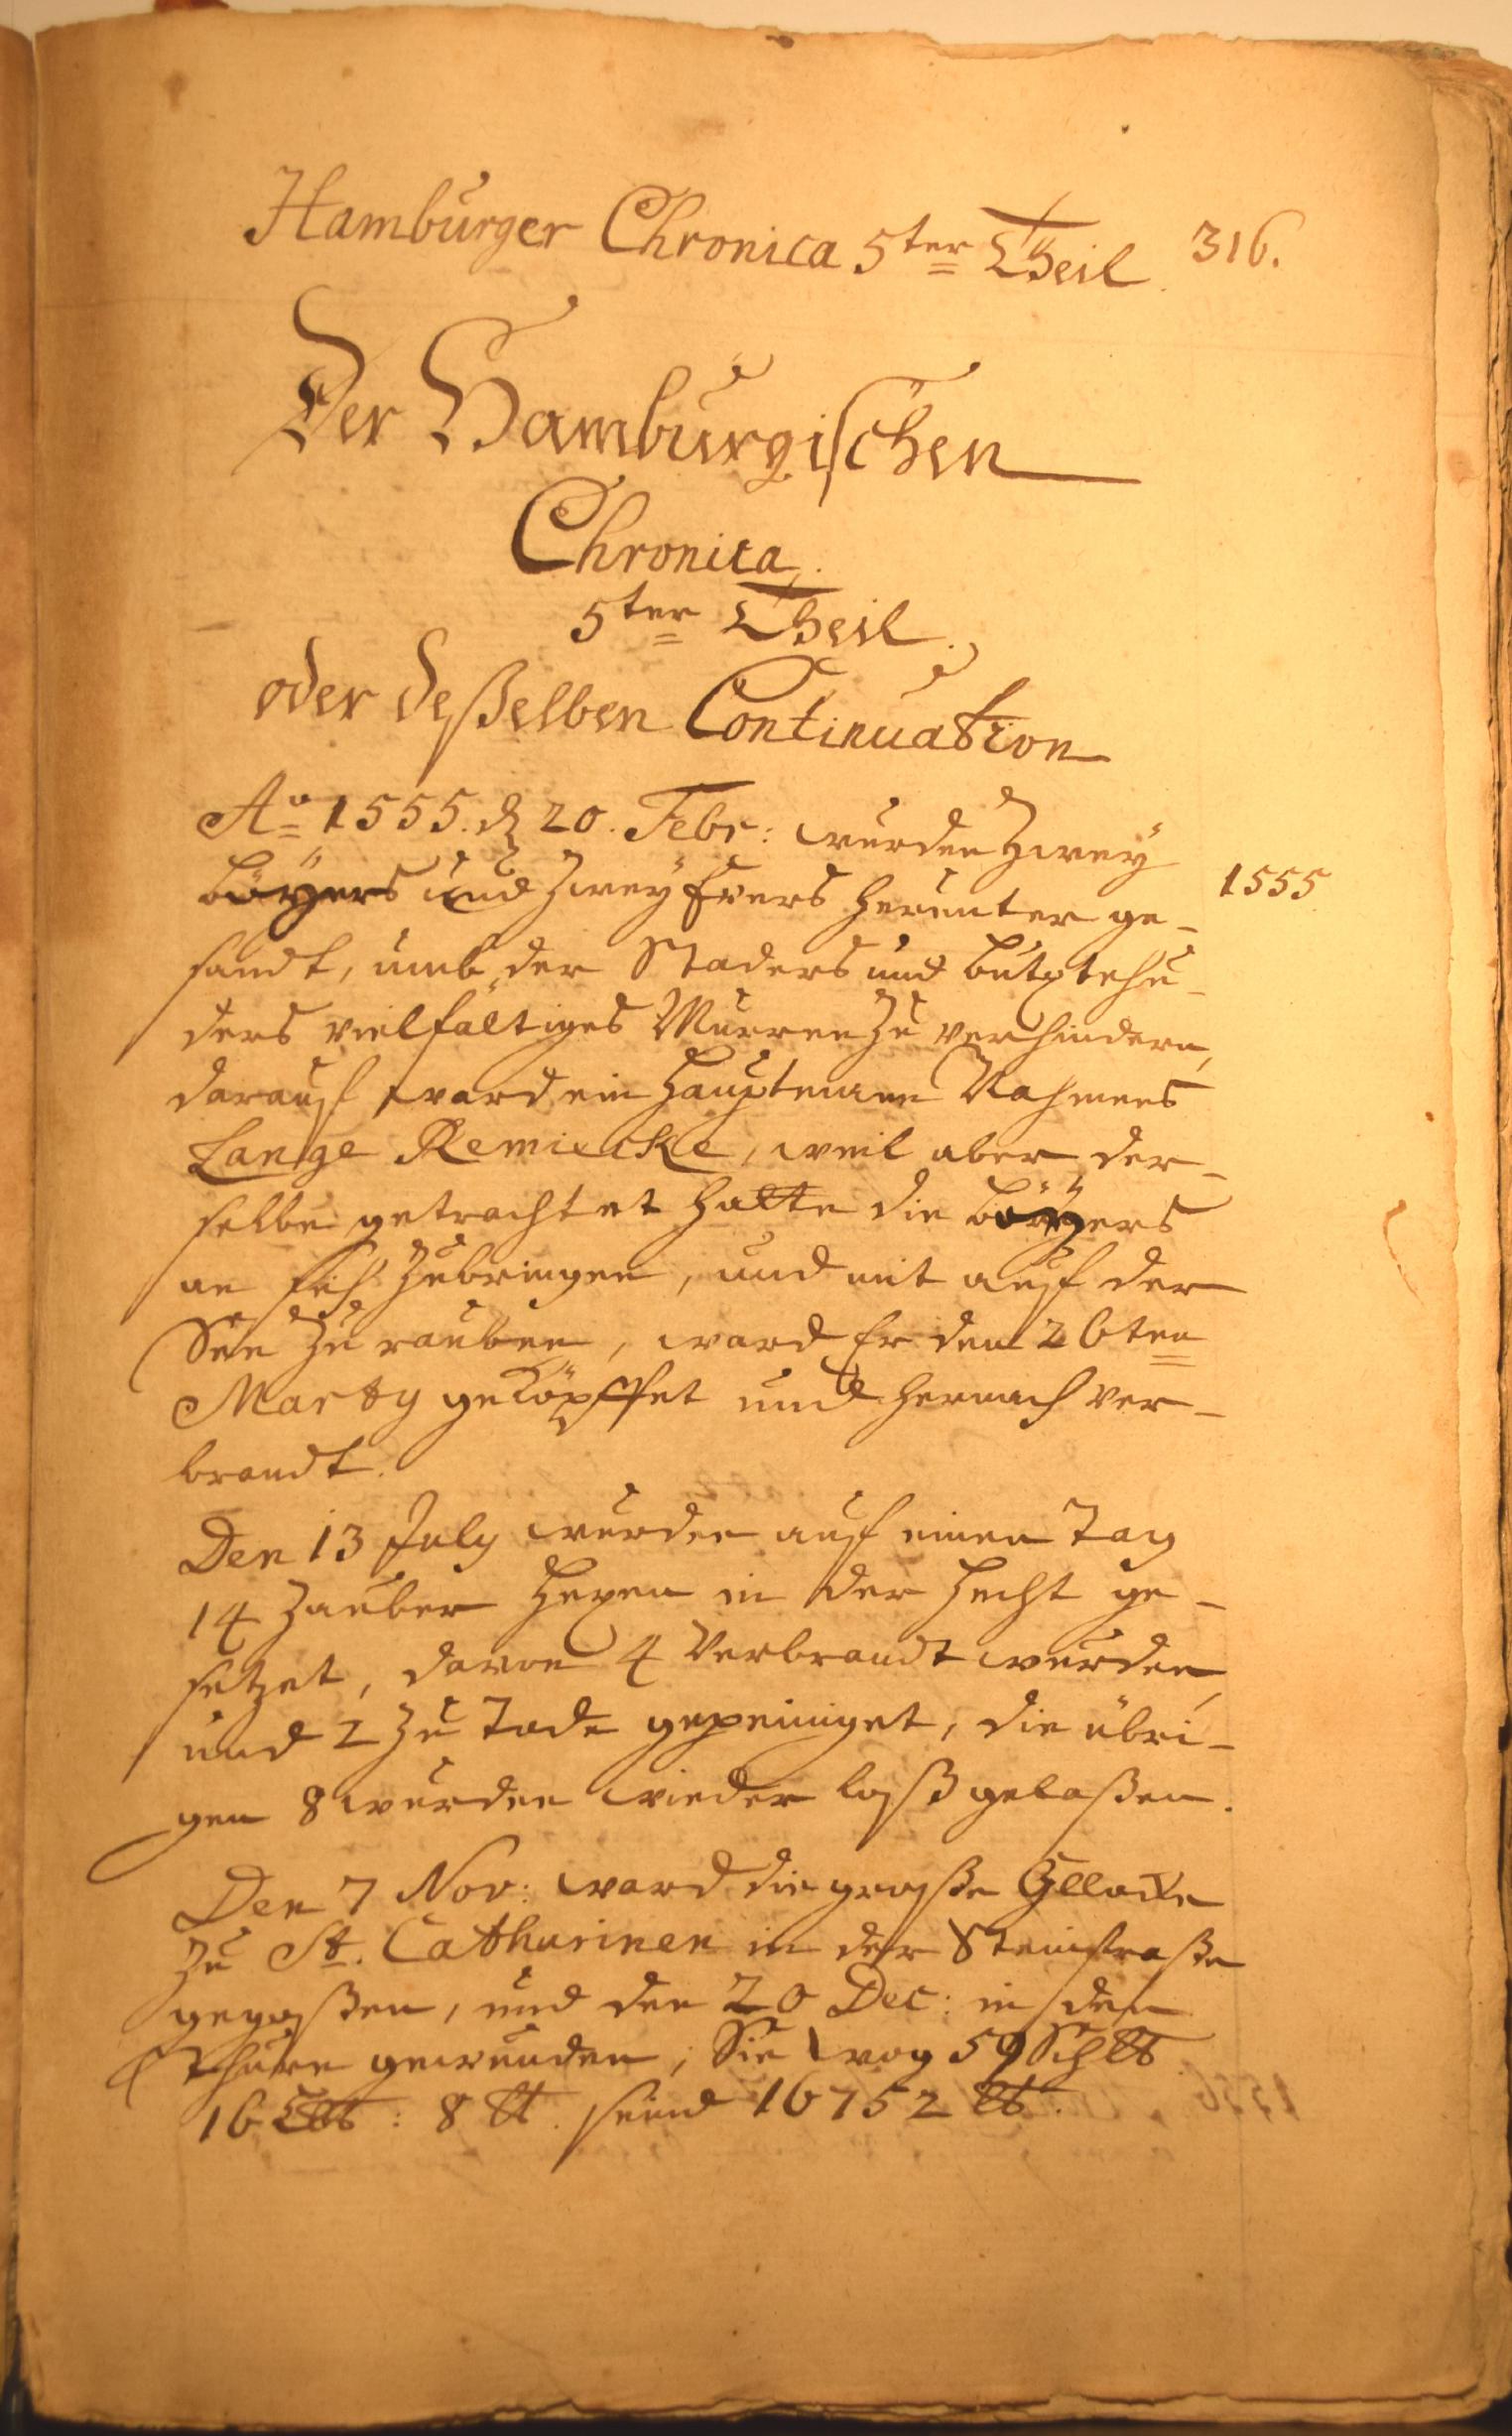 Hamburger Chronica 5ter Theil 316.
Der Hamburgischen
Chronica,
5ter Theil.
oder deßelben Continuation
Ao 1555. d 20. Febr: wurden zwey
1555
böyers und zwey Evers herunter ge-
sandt, umb der Staders und buxtehu-
ders vielfältiges Murren zu verhindern,
darauf ward ein Hauptmann Nahmens
Lange Remicke, weil aber der-
selbe getrachtet hatte die böyers
an sich zubringen, und mit auf der
See zu rauben, ward Er den 26ten
Marty geköpffet und hernach ver-
brandt.
Den 13 July wurden auf einen Tag
14 Zauber Hexen in der Hecht ge-
setzet, davon 4 Verbrandt wurden,
und 2 zu Tode gepeiniget, die übri-
gen 8 wurden wieder loß gelaßen.
Den 7 Nov: ward die große Gllocke
zu St. Catharinen in der Steinstraße
gegoßen, und den 20 Dec: in den
Thurn gewunden, Sie wog 59 Sch℔
16 L℔: 8 ℔. seind 16752 ℔.